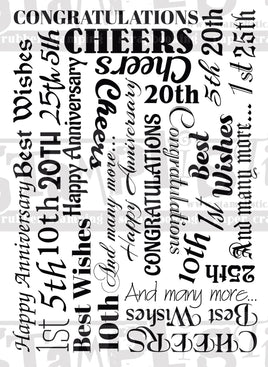 CONGRATULATIONS
CHEERS
Cheers
20th
5th 20th
1st 25th
Best Wishes
25th 5th
Happy Anniversary
Cheers
And many more...
Happy Anniversary
CONGRATULATIONS
Congratulations
Best Wishes
10th 1st
And many more...
25th
Happy Anniversary
1st 5th 10th 20TH
Best Wishes
10th
And many more...
Best Wishes
CHEERS